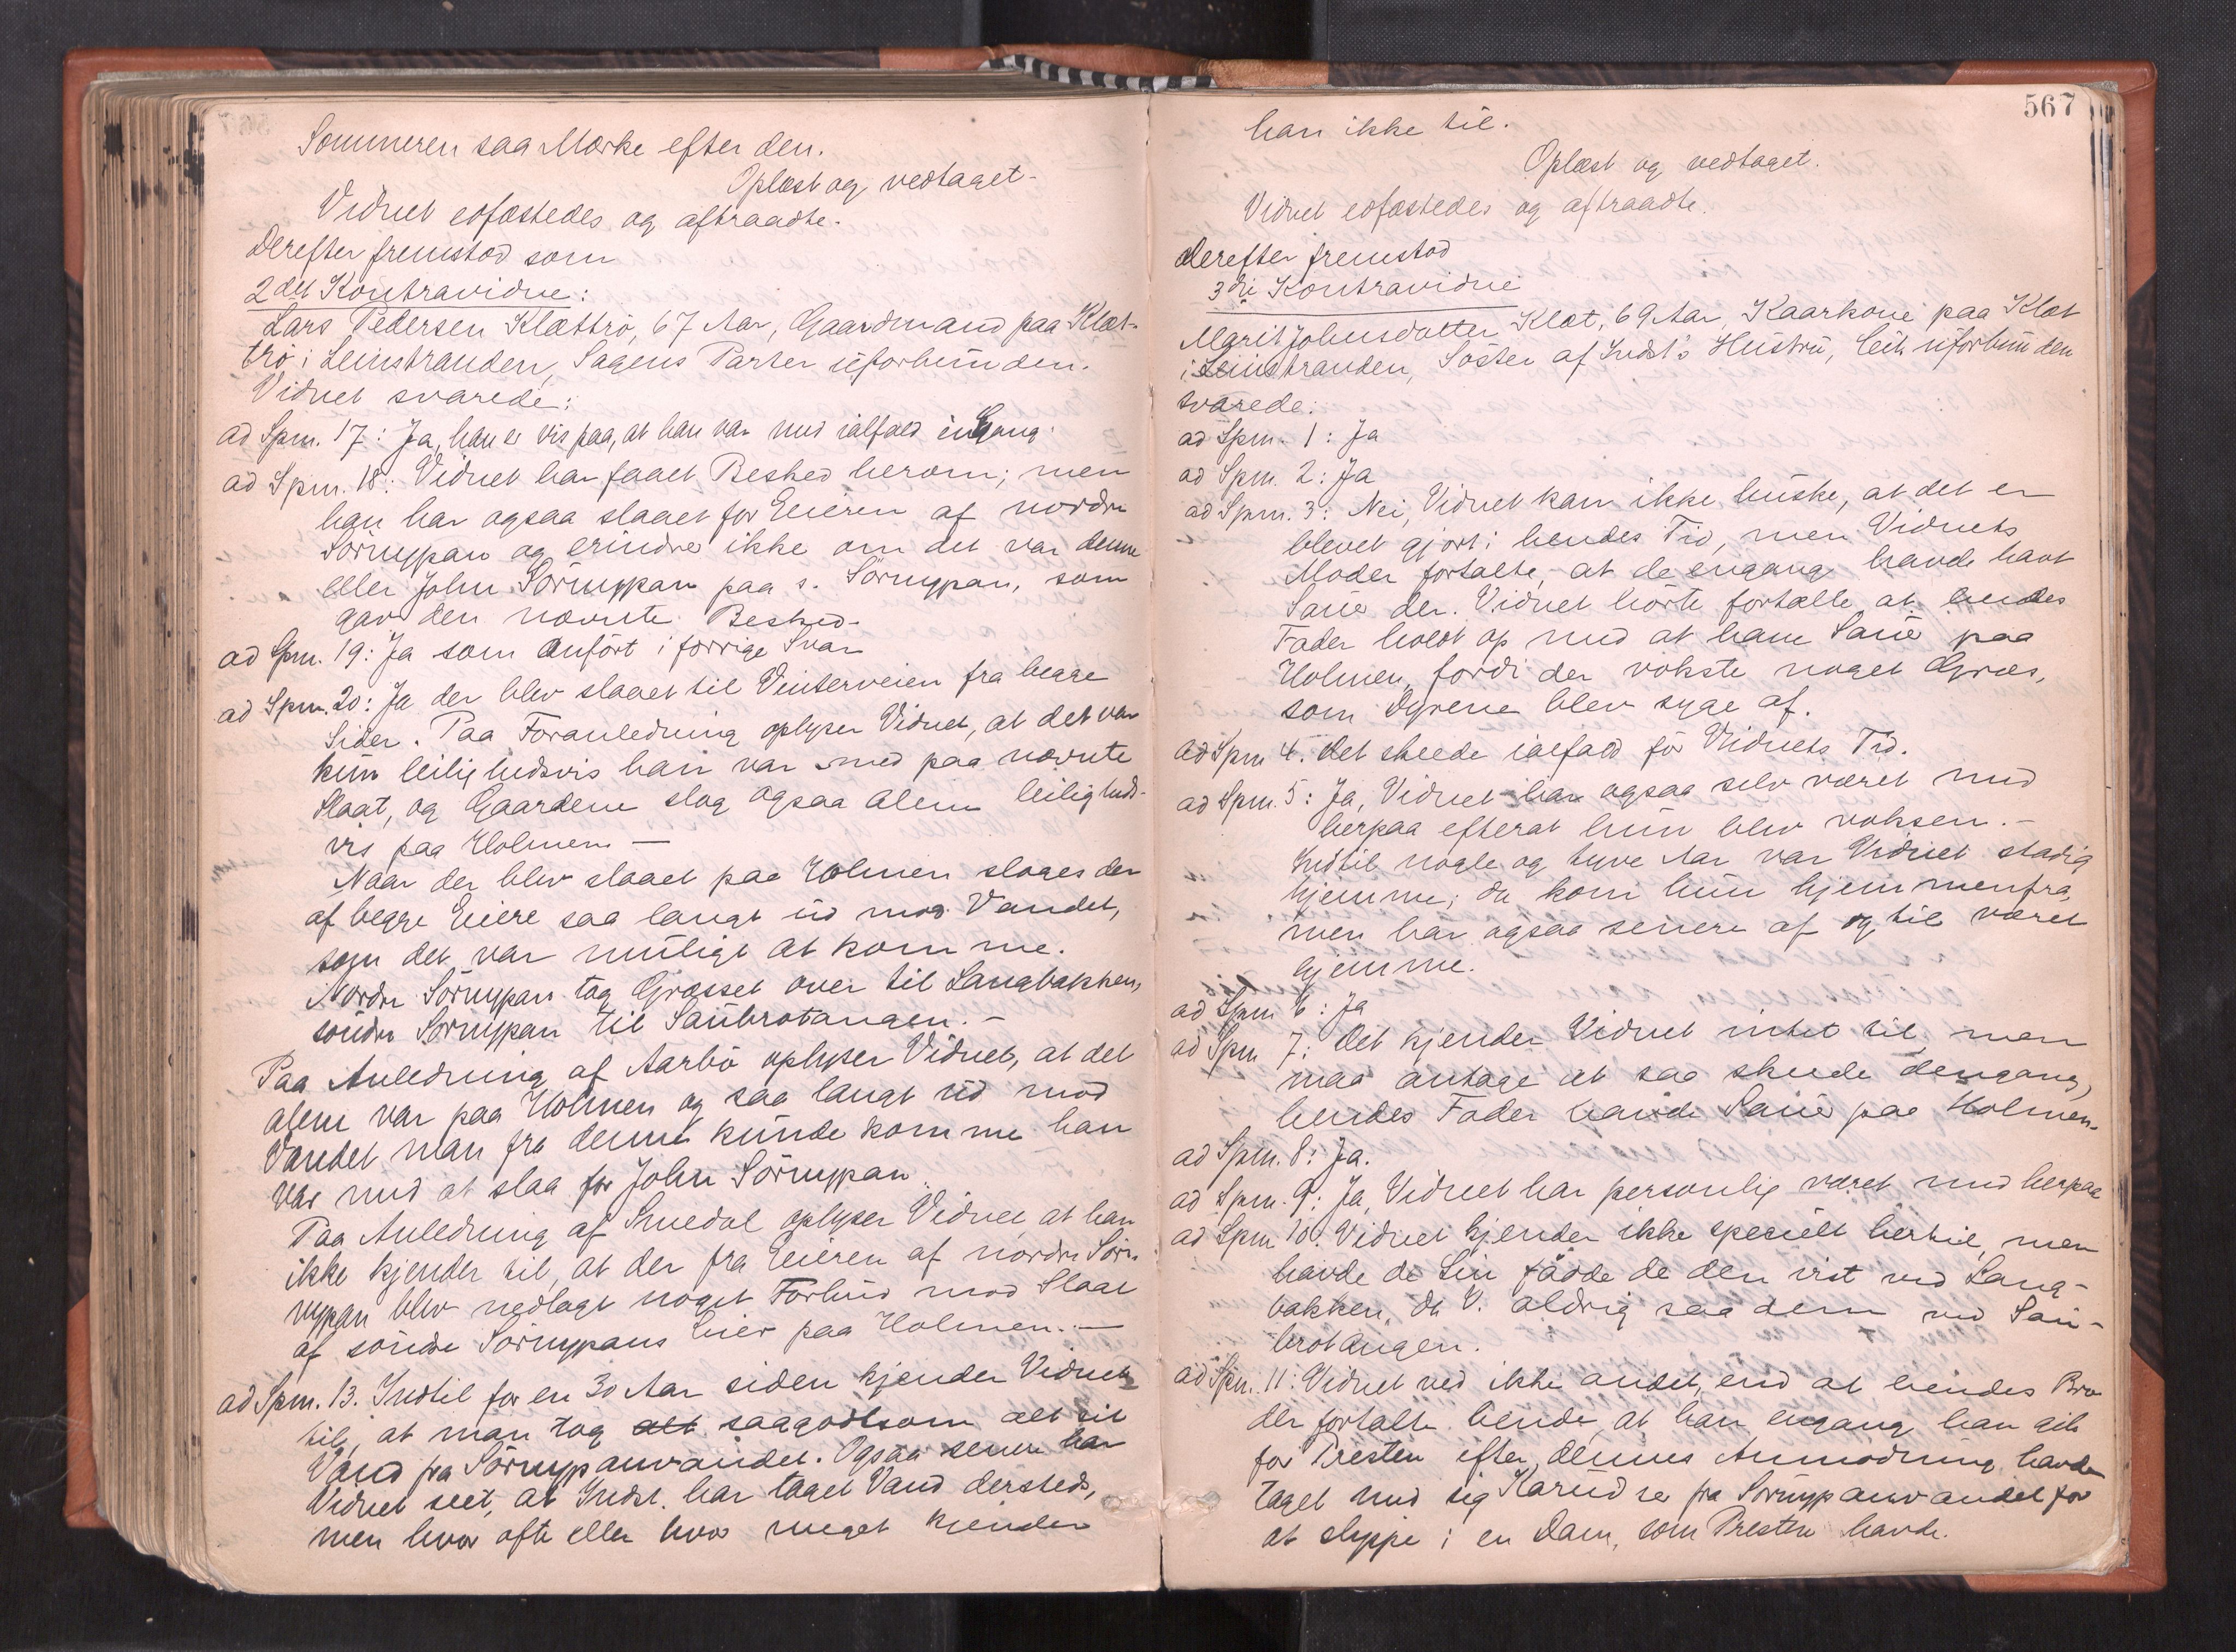 Sommeren saa Mærke efter den.
Oplæst og vedtaget.
Vidnet edfæstedes og aftraadte.
Derefter fremstod som
2det Kontravidne:
Lars Pedersen Klættrø, 67 Aar, Gaardmand paa Klæt-
trø i Leinstranden, Sagens Parter uforbunden.
Vidnet svarede:
ad Spm. 17: Ja, han er vis paa, at han var med ialfald en Gang.
ad Spm. 18: Vidnet har faaet Besked herom; men
han har ogsaa slaaet for Eieren af nordre
Sörnypan og erindrer ikke om det var denne
eller John Sörnypan paa s. Sörnypan, som
gav den nævnte Besked.
ad Spm. 19: Ja som anført i forrige Svar
ad Spm. 20: Ja der blev slaaet til Vinterveien fra begge
Sider. Paa Foranledning oplyser Vidnet, at det var
kun leilighedsvis han var med paa nævnte
Slaat, og Gaardene slog ogsaa alene leiligheds-
vis paa Holmen. —
Naar der blev slaaet paa Holmen sloges der
af begge Eiere saa langt ud mod Vandet,
som det var muligt at komme.
Nordre Sörnypan tog Græsset over til Langbakken,
söndre Sörnypan til Saubrotangen. —
Paa Anledning af Aarbö oplyser Vidnet, at det
alene var paa Holmen og saa langt ud mod
Vandet man fra denne kunde komme han
var med at slaa for John Sörnypan.
Paa Anledning af Smedal oplyser Vidnet, at han
ikke kjender til, at der fra Eieren af nordre Sör-
nypan blev nedlagt noget Forbud mod Slaat
af söndre Sörnypans Eier paa Holmen. —
ad Spm. 13. Indtil for en 30 Aar siden kjender Vidnet
til, at man tog alt saagodtsom alt sit
Vand fra Sörnypanvandet. Ogsaa senere har
Vidnet seet, at Indst. har taget Vand dersteds,
men hvor ofte eller hvor meget kjender
567
han ikke til.
Oplæst og vedtaget.
Vidnet edfæstedes og aftraadte.
Derefter fremstod
3die Kontravidne
Marit Johnsdatter Klæt, 69 Aar, Kaarkone paa Klæt
i Leinstranden, Söster af Indst's Hustru, uforbunden
svarede:
ad Spm. 1: Ja
ad Spm. 2: Ja
ad Spm. 3: Nei, Vidnet kan ikke huske, at det er
blevet gjort i hendes Tid, men Vidnets
Moder fortalte, at de engang havde havt
Sauer der. Vidnet hörte fortalle at hendes
Fader holdt op med at have Sauer paa
Holmen, fordi der vokste noget Græs,
som Dyrene blev syge af.
ad Spm 4. Det skeede ialfald för Vidnets Tid.
ad Spm. 5: Ja, Vidnet har ogsaa selv været med
herpaa efterat hun blev voksen. —
Indtil nogle og tyve Aar var Vidnet stadig
hjemme; da kom hun hjemmenfra,
men har ogsaa senere af og til været
hjemme.
ad Spm 6: Ja
ad Spm 7: Det kjender Vidnet intet til, men
maa antage at saa skeede dengang,
hendes Fader havde Sauer paa Holmen.
ad Spm. 8: Ja.
ad Spm. 9: Ja, Vidnet har personlig været med herpaa
ad Spm 10: Vidnet kjender ikke specielt hertil, men
havde de Lin fådde de den vist ved Lang-
bakken, da V. aldrig saa dem ved Sau-
brotangen.
ad Spm. 11: Vidnet ved ikke andet, end at hendes Bro-
der fortalte hende, at han engang han gik
for Presten efter dennes Anmodning havde
taget med sig Karudser fra Sörnypanvandet for
at slyppe i en Dam, som Presten havde.